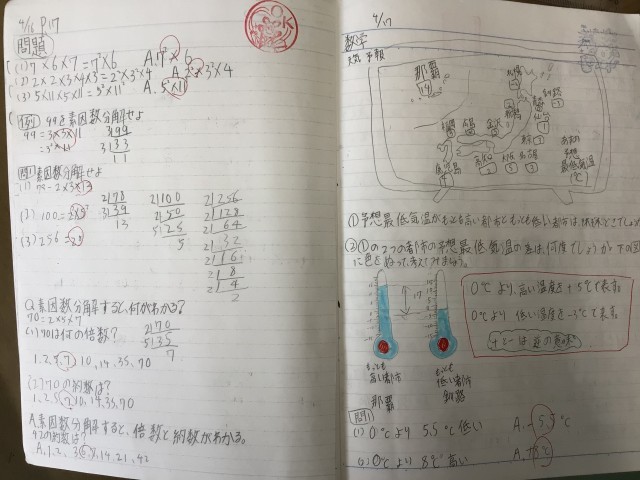 4/16 P17
問題
(1) 7×6×7=7²×6 A.7²×6
(2) 2×2×3×4×3=2²×3²×4 A.2²×3²×4
(3) 5×11×5×11=5²×11² A.5²×11²
(例1) 99を素因数分解せよ
99=3×3×11
=3²×11
3)99
3)33
11
問1 素因数分解せよ
(1) 78=2×3×13
2)78
3)39
13
(2) 100=2²×5²
2)100
2)50
5)25
5
(3) 256=2⁸
2)256
2)128
2)64
2)32
2)16
2)8
2)4
2
Q.素因数分解すると、何がわかる?
70=2×5×7
(1) 70は何の倍数?
2)70
5)35
7
1.2.5.7.10.14.35.70
(2) 70の約数は?
1.2.5.7.10.14.35.70
A.素因数分解すると、倍数と約数がわかる。
42の約数は?
A.1.2.3.6.7.14.21.42
4/17
数学
天気予報
那覇
19
札幌
釧路
仙台
金沢
東京
名古屋
大阪
高知
鹿児島
あすの
予想
最低気温
(℃)
①予想最低気温がもっとも高い都市ともっとも低い都市は、それぞれどこでしょう
②①の2つの都市の予想最低気温の差は、何度でしょうか 下の図
に色をぬって、考えてみましょう。
17
もっとも
高い都市
那覇
もっとも
低い都市
釧路
0℃より、高い温度を+5℃で表す。
0℃より 低い温度を-3℃で表す。
+と-は逆の意味
問1
(1) 0℃より 5.5℃低い A.-5.5℃
(2) 0℃より 8℃高い A.+8℃